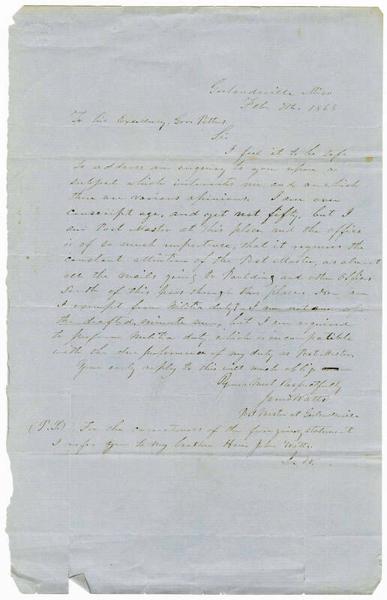 Garlandville Miss
Feb. 1863
To his Excellency, Gov. Pettus,
Sir
I feel it to be safe
to address an enquiry to you upon a
subject which interests me and on which
there are various opinions. I am over
conscript age, and yet not fifty, but I
am Post Master at this place and the office
is of so much importance, that it requires the
constant attention of the Post Master, as almost
all the mails going to Paulding and other Offices
South of this, pass through this place. Now am
I exempt from Militia duty? I am not one of
the drafted, minute men, but I am required
to perform Militia duty, which is incompatible
with the due performance of my duty as Post Master.
Your early reply to this will much oblige
Yours Most respectfully
James Watts
Post Master at Garlandville
(P.S.) For the correctness of the foregoing statement
I refer you to my brother Hon. John Watts.
J. W.